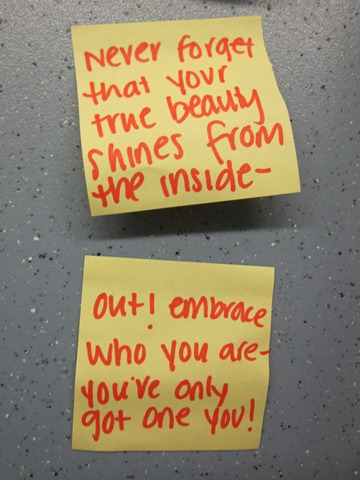 Never forget
that your
true beauty
shines from
the inside-
out! embrace
who you are-
you've only
got one you!